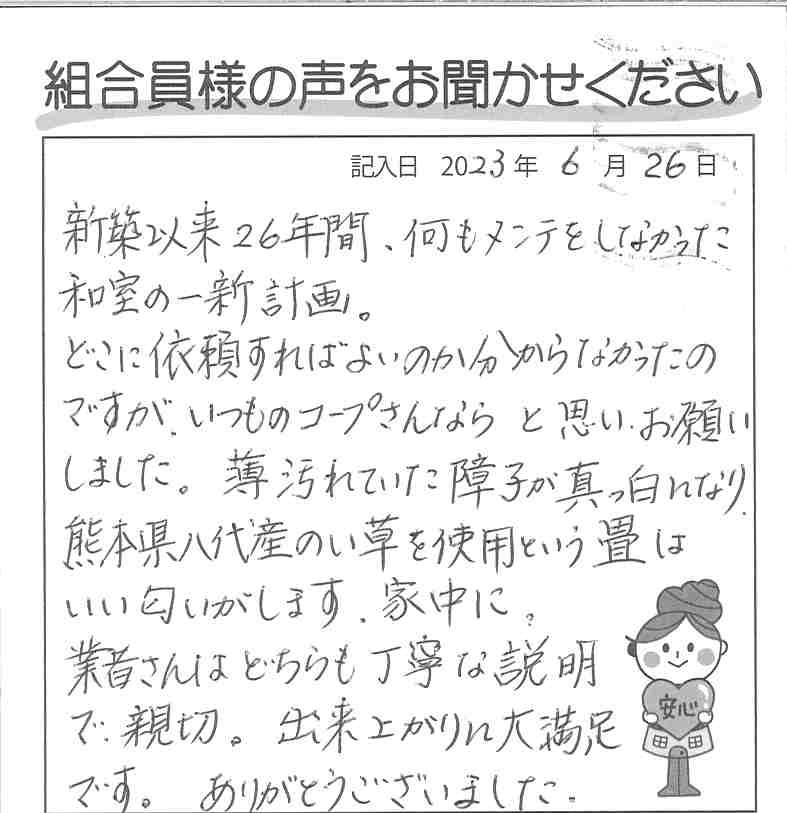 組合員様の声をお聞かせください
記入日 2023年 6月 26日
新築以来26年間、何もメンテをしなかった
和室の一新計画。
どこに依頼すればよいのか分からなかったの
ですが、いつものコープさんなら と思い、お願い
しました。 薄汚れていた障子が真っ白になり、
熊本県八代産のい草を使用という畳は
いい匂いがします、家中に。
業者さんはどちらも丁寧な説明
で、親切。 出来上がりに大満足
です。 ありがとうございました。
安心